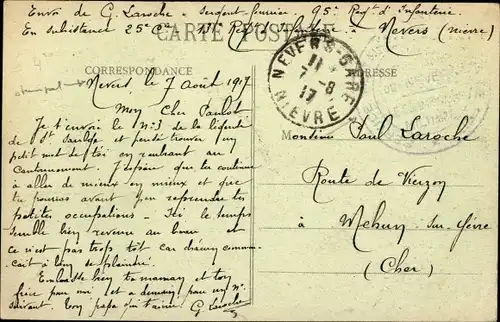 Envoi de G. Laroche - Sergent fourrier 95e Regt d'Infanterie
En subsistance 25e Cie 13e Regt Infanterie à Nevers (Nièvre)
CARTE POSTALE
CORRESPONDANCE
ADRESSE
NEVERS-GARE
11
7-8
17
NIEVRE
Nevers, le 7 Août 1917
Mon Cher Paulot
Je t'envoie le No 3 de la légende
de St Saulge et pense trouver un
petit mot de toi en rentrant au
Cantonnement. J'espère que tu continues
à aller de mieux en mieux et que
tu pourras avant peu reprendre tes
petites occupations - Ici le temps
semble bien revenu au beau et
ce n'est pas trop tôt car chacun commen-
çait à bien se plaindre.
Embrasse bien ta maman et ton
frère pour moi et à demain pour un No
suivant. Ton papa qui t'aime G. Laroche
Monsieur Paul Laroche
Route de Vierzon
à Mehun-sur-Yèvre
(Cher)